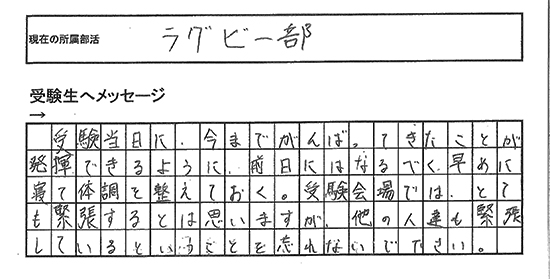 現在の所属部活 ラグビー部
受験生へメッセージ
→
受験当日に、今までがんばってきたことが
発揮できるように、前日にはなるべく早めに
寝て体調を整えておく。受験会場では、とて
も緊張するとは思いますが、他の人達も緊張
しているということを忘れないで下さい。